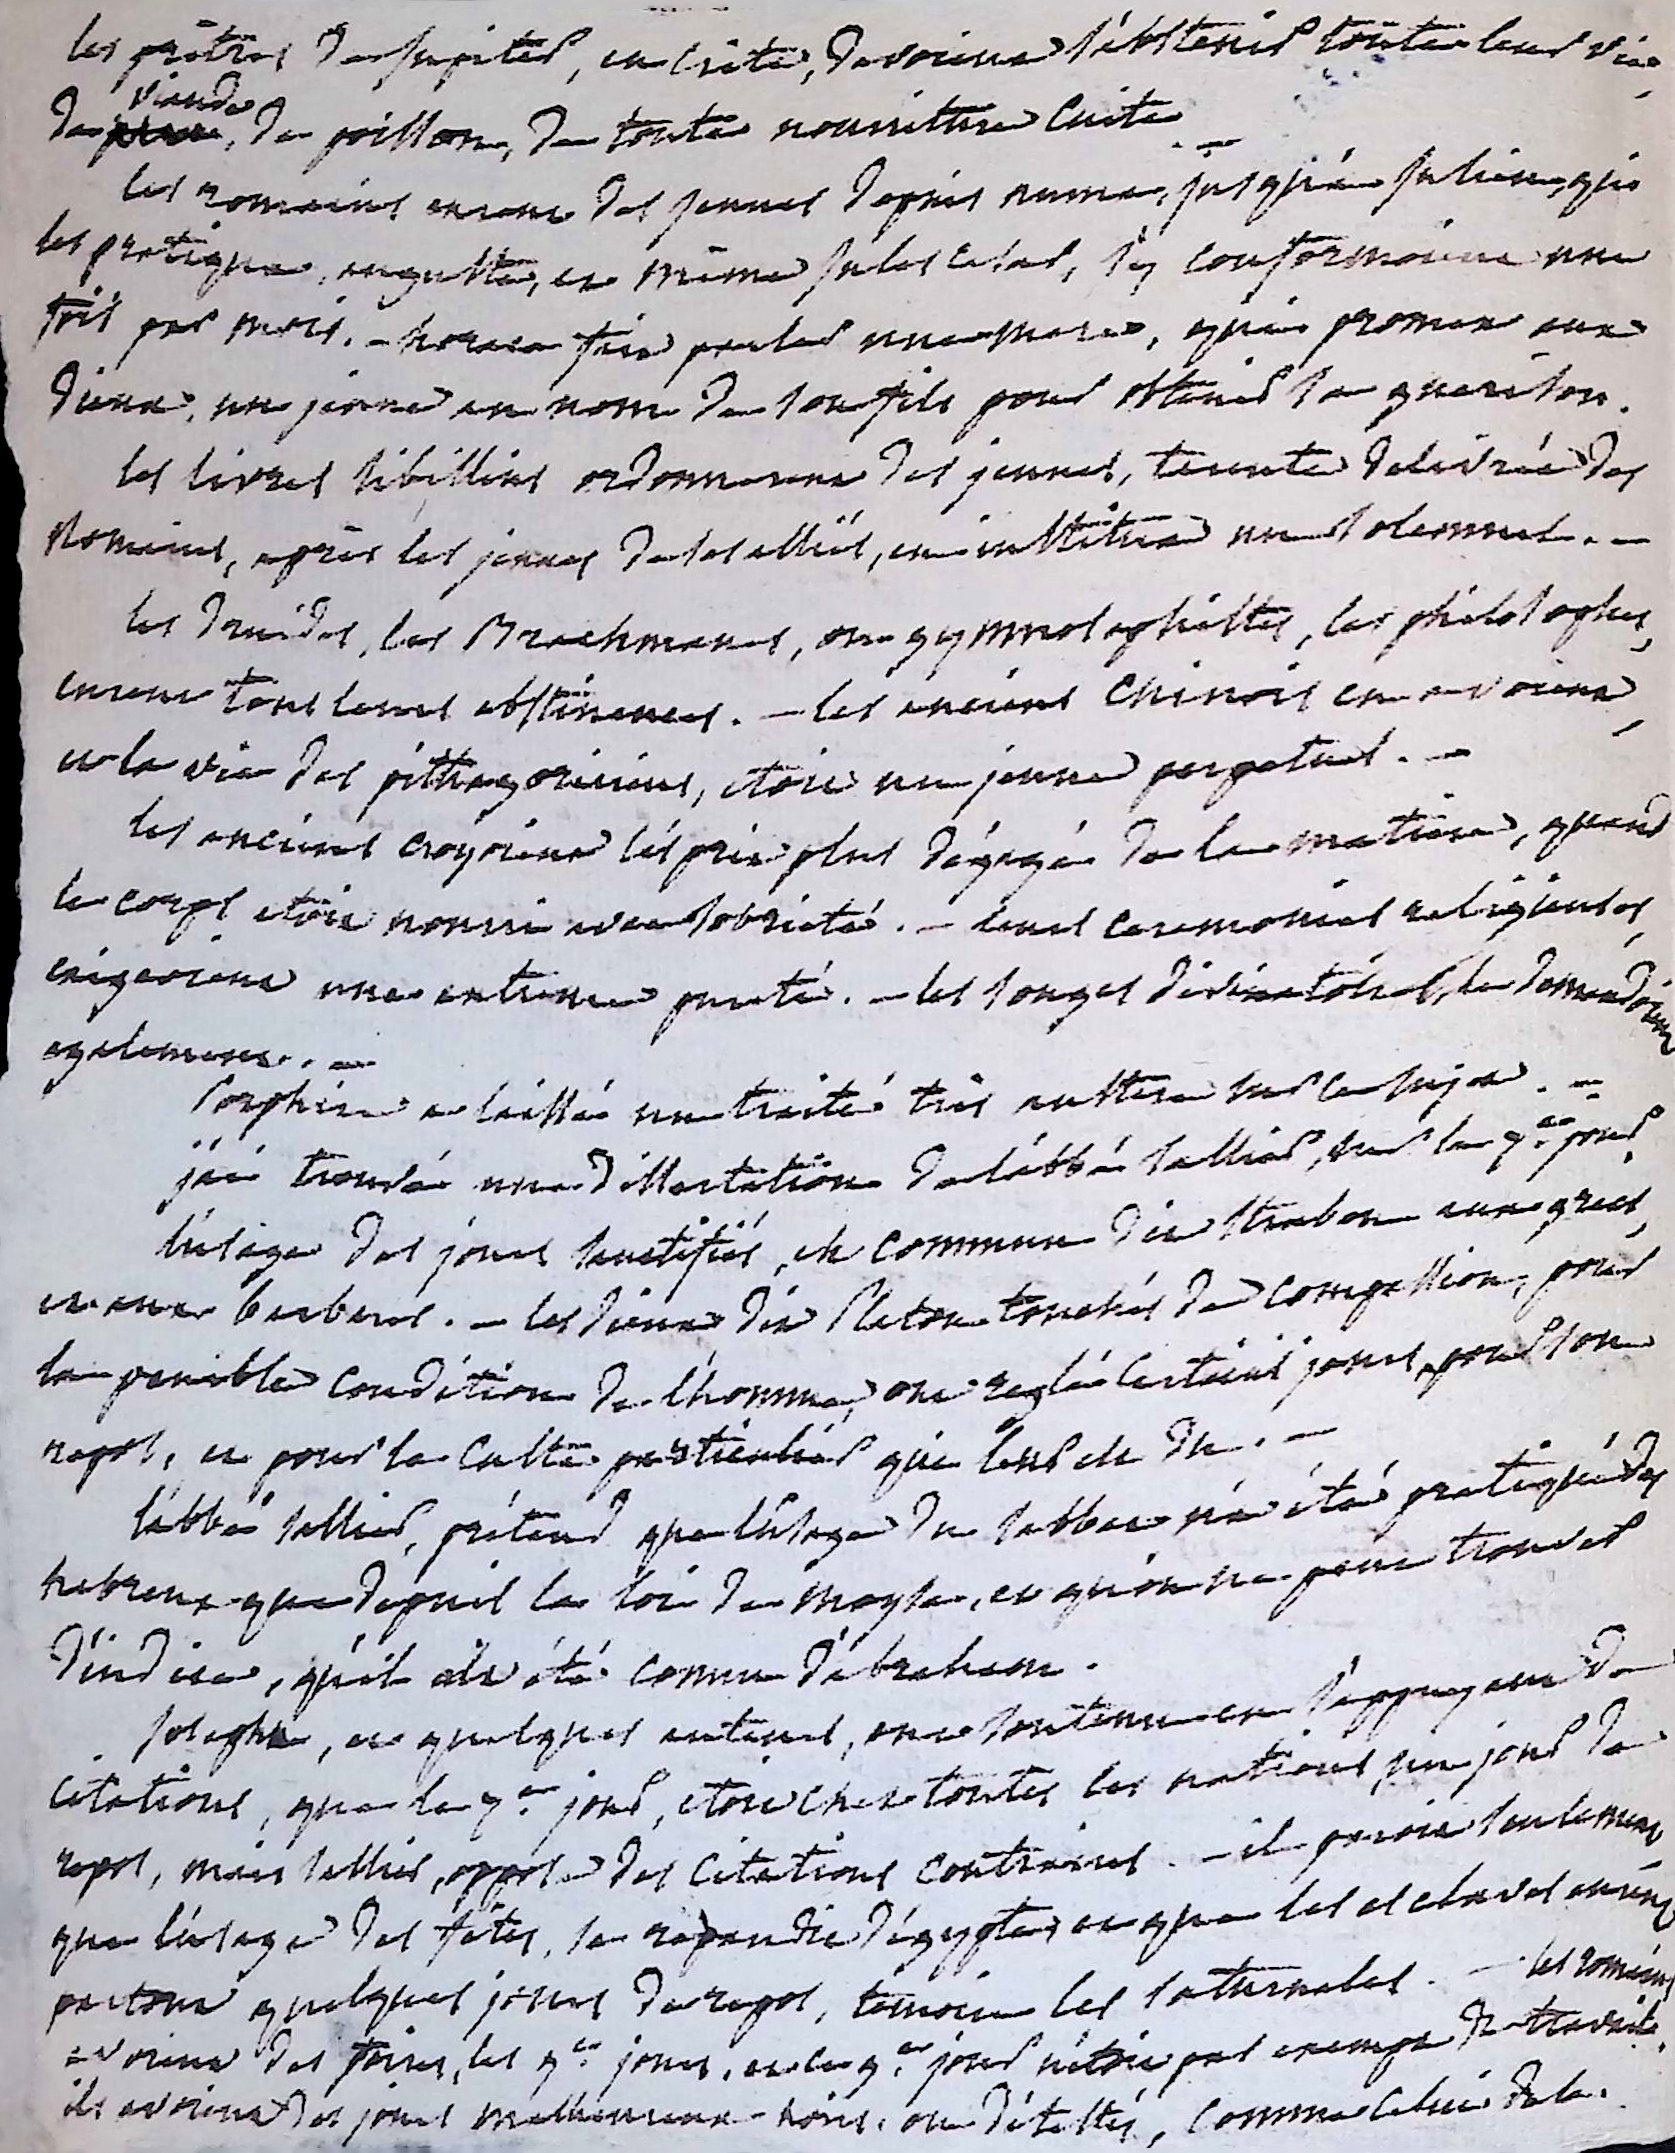 les prêtres de Jupiter, en Crète, devoient s'abstenir toute leur vie,
de viande, de poisson, de toute nourriture cuite.
les romains eurent des jeunes depuis numa, jusqu'à Julien, qui
les pratiqua, auguste, et même Jules Cesar, s'y conformoient une
fois par mois. — horace fait parler une mere, qui promet aux
dieux, un jeune au nom de son fils pour obtenir sa guerison.
les livres sibillins ordonnerent des jeunes, tarente delivrée des
Romains, après les jeunes de ses alliés, en institua un solemnel. —
les druides, les Brachmanes, ou gymnosophistes, les philosophes,
eurent tous leurs abstinences. — les anciens Chinois en avoient,
et la vie des pithagoriciens, etoit un jeune perpetuel. —
les anciens croyoient l'esprit plus dégagé de la matiere, quand
le corps etoit nourri avec sobrieté. — leurs ceremonies religieuses,
exigeoient une extreme pureté. — les songes divinatoires, la demandoient
egalement. —
Porphire a laissé un traité très austere sur ce sujet. —
j'ai trouvé une dissertation de l'abbé sallier, sur le 7.e jour.
l'usage des jours sanctifiés, est commun dit strabon aux grecs,
et aux barbares. — les dieux dit Platon touchés de compassion, pour
la penible condition de l'homme, ont reglé certains jours, pour son
repos, et pour le culte particulier qui leur est du. —
l'abbé sallier, prétend que l'usage du sabbat n'a été pratiqué des
hebreux que depuis la loi de moyse, et qu'on ne peut trouver
d'indice, qu'il ait été connu d'abraham.
Josephe, et quelques auteurs, ont soutenu en s'appuyant de
citations, que le 7.e jour, etoit chez toutes les nations un jour de
repos, mais sallier, oppose des citations contraires. — il paroit seulement
que l'usage des fêtes, se repandit d'égypte, et que les esclaves eurent
partout quelques jours de repos, temoin les saturnales. — les romains
avoient des foires, les 9.es jours, et ce 9.e jour n'étoit pas exempt de travail.
ils avoient des jours malheureux - noirs, ou détestés, comme celui de la